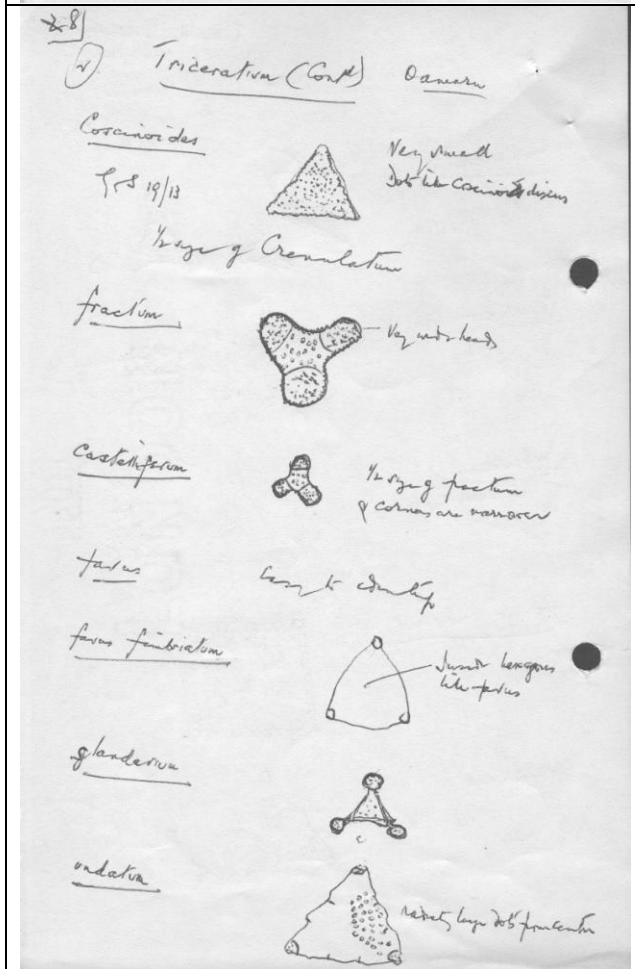 Triceratium (Contd) Oamaru
Coscinoides
Very small
Dots like Coscinodiscus
G&S 19/13
1/2 size of Crenulatum
fractum
Very wide heads
Castelliferum
1/2 size of fractum
& corners are narrower
favus
Easy to identify
favus fimbriatum
Inside hexagons
like favus
glandarium
undatum
large dots from centre